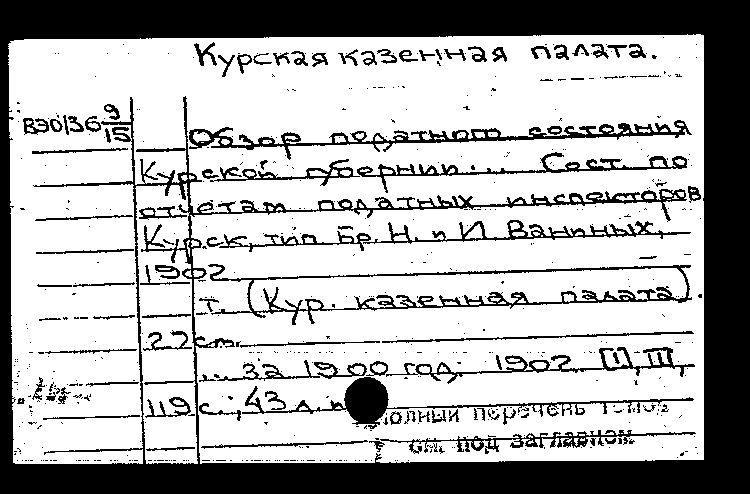 Курская казенная палата.
В90/36 9/15
Обзор податного состояния
Курской губернии... Сост. по
отчетам податных инспекторов.
Курск, тип. Бр. Н. и И. Ваниных,
1902
т. (Кур. казенная палата).
27 см.
... за 1900 год. 1902. [I], III,
119 с.; 43 л.
полный перечень томов
см. под заглавием